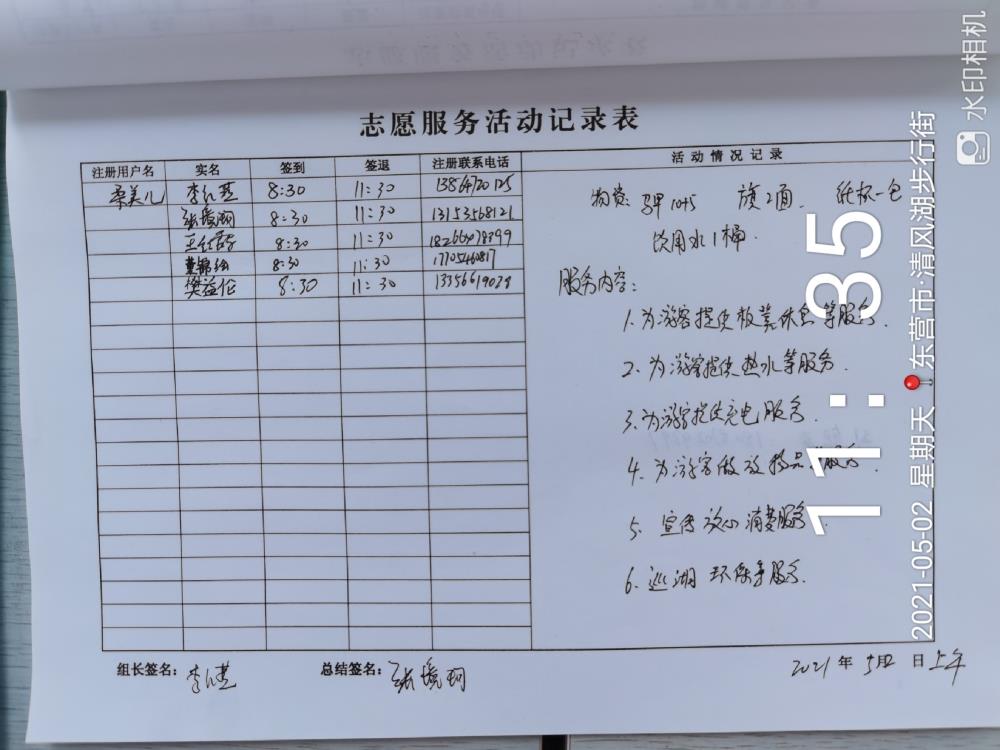 志愿服务活动记录表
注册用户名 实名 签到 签退 注册联系电话 活动情况记录
柔美儿 李红燕 8:30 11:30
8:30 11:30 13153568121
8:30 11:30
8:30 11:30
樊益伦 8:30 11:30
物资 旗2面. 纸杯一包
饮用水1桶.
服务内容:
1.为游客提供板凳休息等服务.
2.为游客提供热水等服务.
3.为游客提供充电服务.
4.为游客做 服务.
5.宣传放心消费服务
6.巡湖 环保等服务.
组长签名: 总结签名:
2021年5月2日上午
水印相机
11:35
2021-05-02 星期天 东营市·清风湖步行街